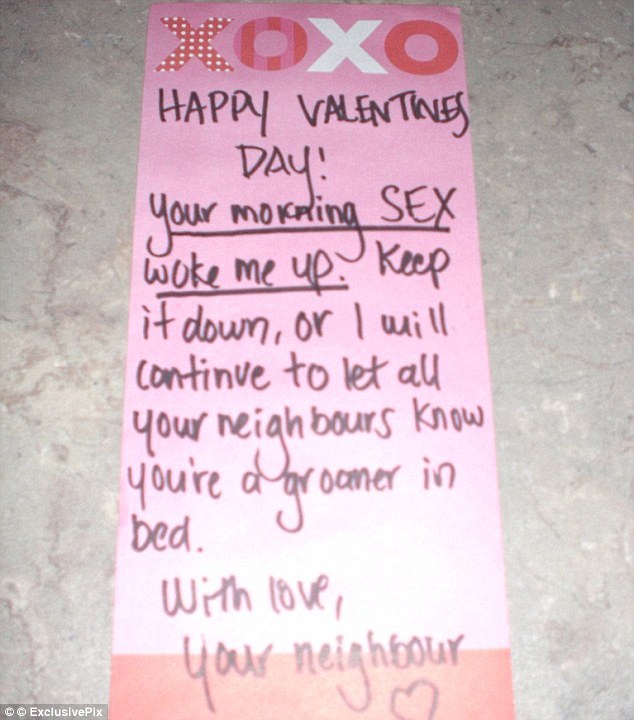 XOXO
HAPPY VALENTINES
DAY!
your morning SEX
woke me up. Keep
it down, or I will
continue to let all
your neighbours know
you're a groaner in
bed.
With love,
Your neighbour
© © ExclusivePix